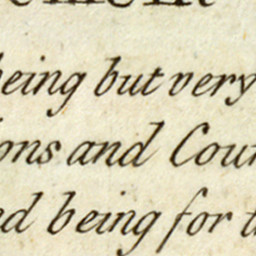 being but very
ons and Cour
ed being for t